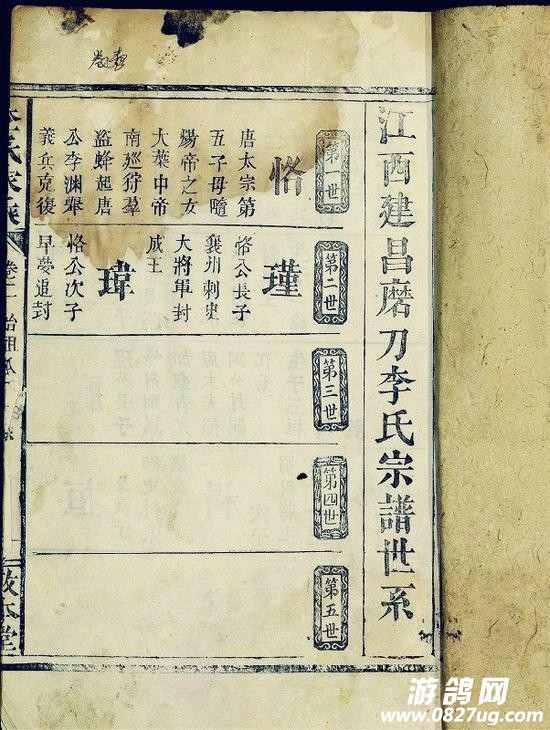 江西建昌磨刀李氏宗譜世系
第一世
恪
唐太宗第
五子母隨
煬帝之女
大葉中帝
南廵狩羣
盗蜂起唐
公李淵舉
義兵克復
第二世
瑾
恪公長子
襄州刺史
大將軍封
成王
瑋
恪公次子
早夢追封
第三世
第四世
第五世
敦本堂
游鸽网
www.0827ug.com